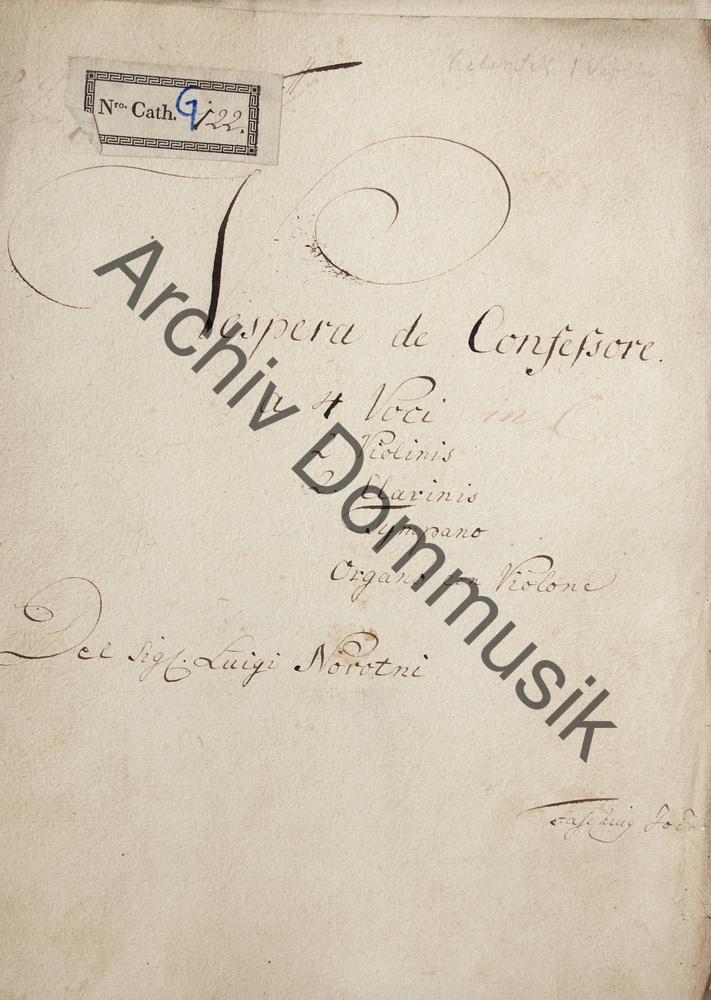 Nro. Cath. G 122.
Vespera de Confessore.
a 4 Voci in C
2 Violinis
2 Clarinis
Tympano
Organo con Violone
Del Sigl. Luigi Novotni
Archiv Dommusik